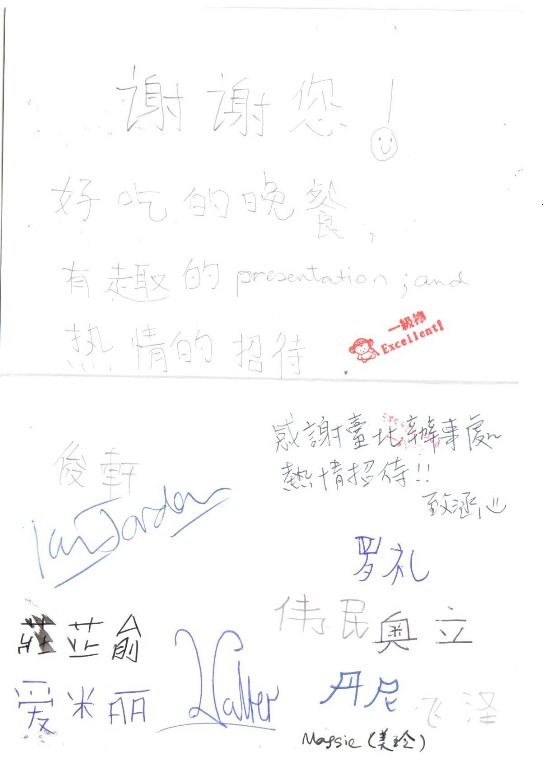 谢谢您!
好吃的晚餐,
有趣的presentation, and
热情的招待
一級棒
Excellent!
感謝臺北辦事處
熱情招待!!
俊軒
Ian Jordan
罗礼
伟民
奥立
莊芷俞
爱米丽
Walter
丹尼
飞泽
Maggie (美玲)